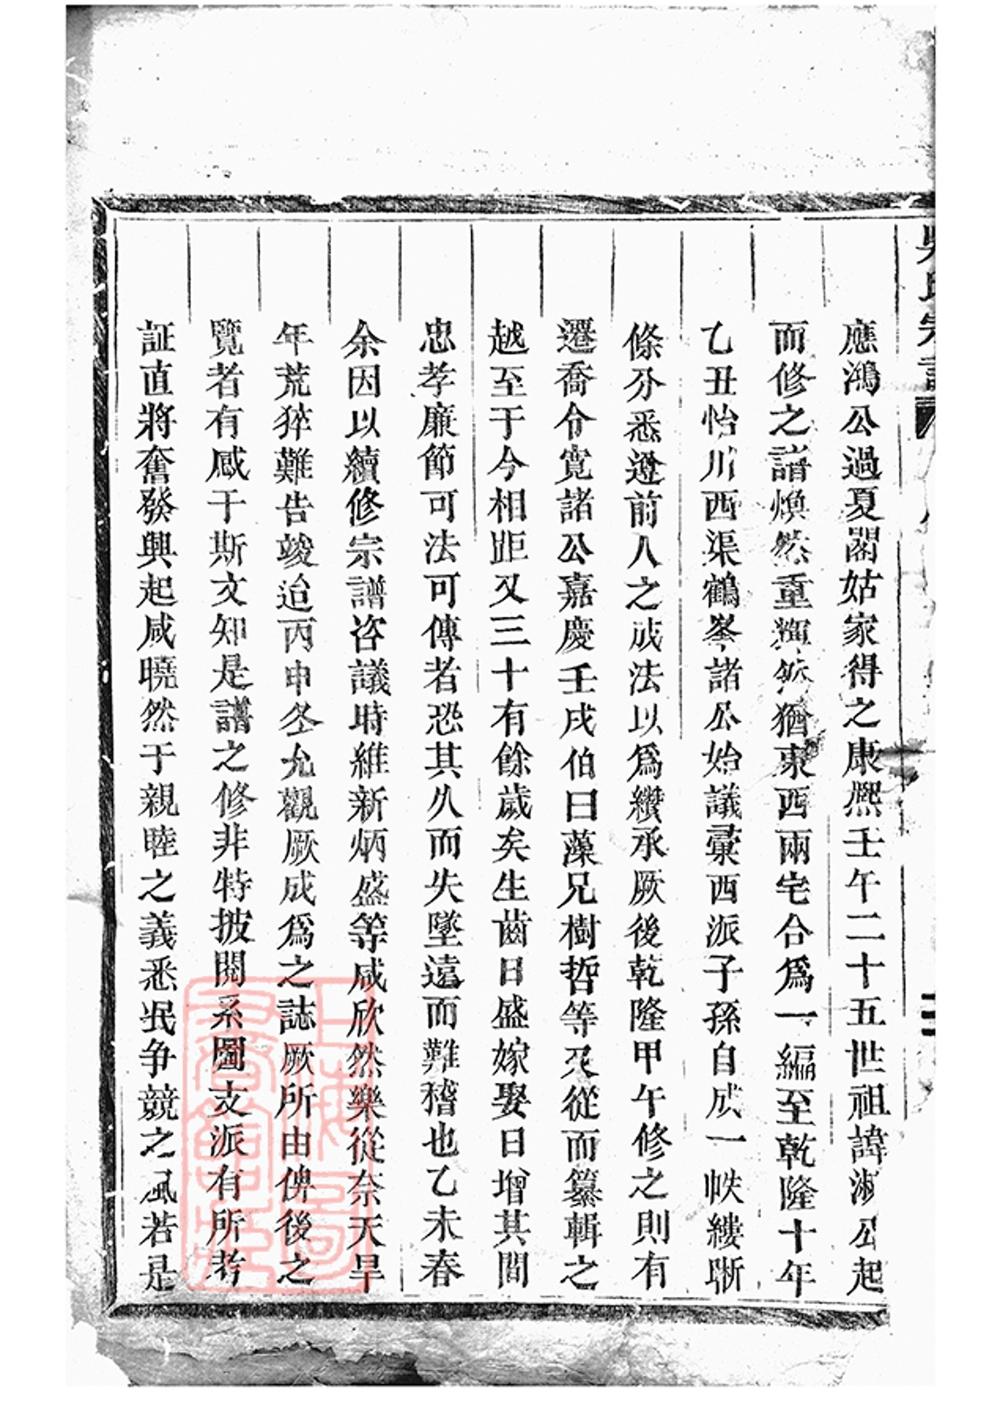 吳氏宗譜
應鴻公過夏閣姑家得之康熙壬午二十五世祖諱淑公起
而修之譜煥然重輝然猶東西兩宅合爲一編至乾隆十年
乙丑怡川西渠鶴峯諸公始議彙西派子孫自成一帙縷晰
條分悉遵前人之成法以爲纘承厥後乾隆甲午修之則有
遷喬令寬諸公嘉慶壬戌伯曰藻兄樹哲等又從而纂輯之
越至于今相距又三十有餘歲矣生齒日盛嫁娶日增其間
忠孝廉節可法可傳者恐其久而失墜遠而難稽也乙未春
余因以續修宗譜咨議時維新炳盛等咸欣然樂從奈天旱
年荒猝難告竣迨丙申冬允觀厥成爲之誌厥所由俾後之
覽者有感于斯文知是譜之修非特披閱系圖支派有所考
証直將奮發興起咸曉然于親睦之義悉泯争競之風若是
上海圖書館藏